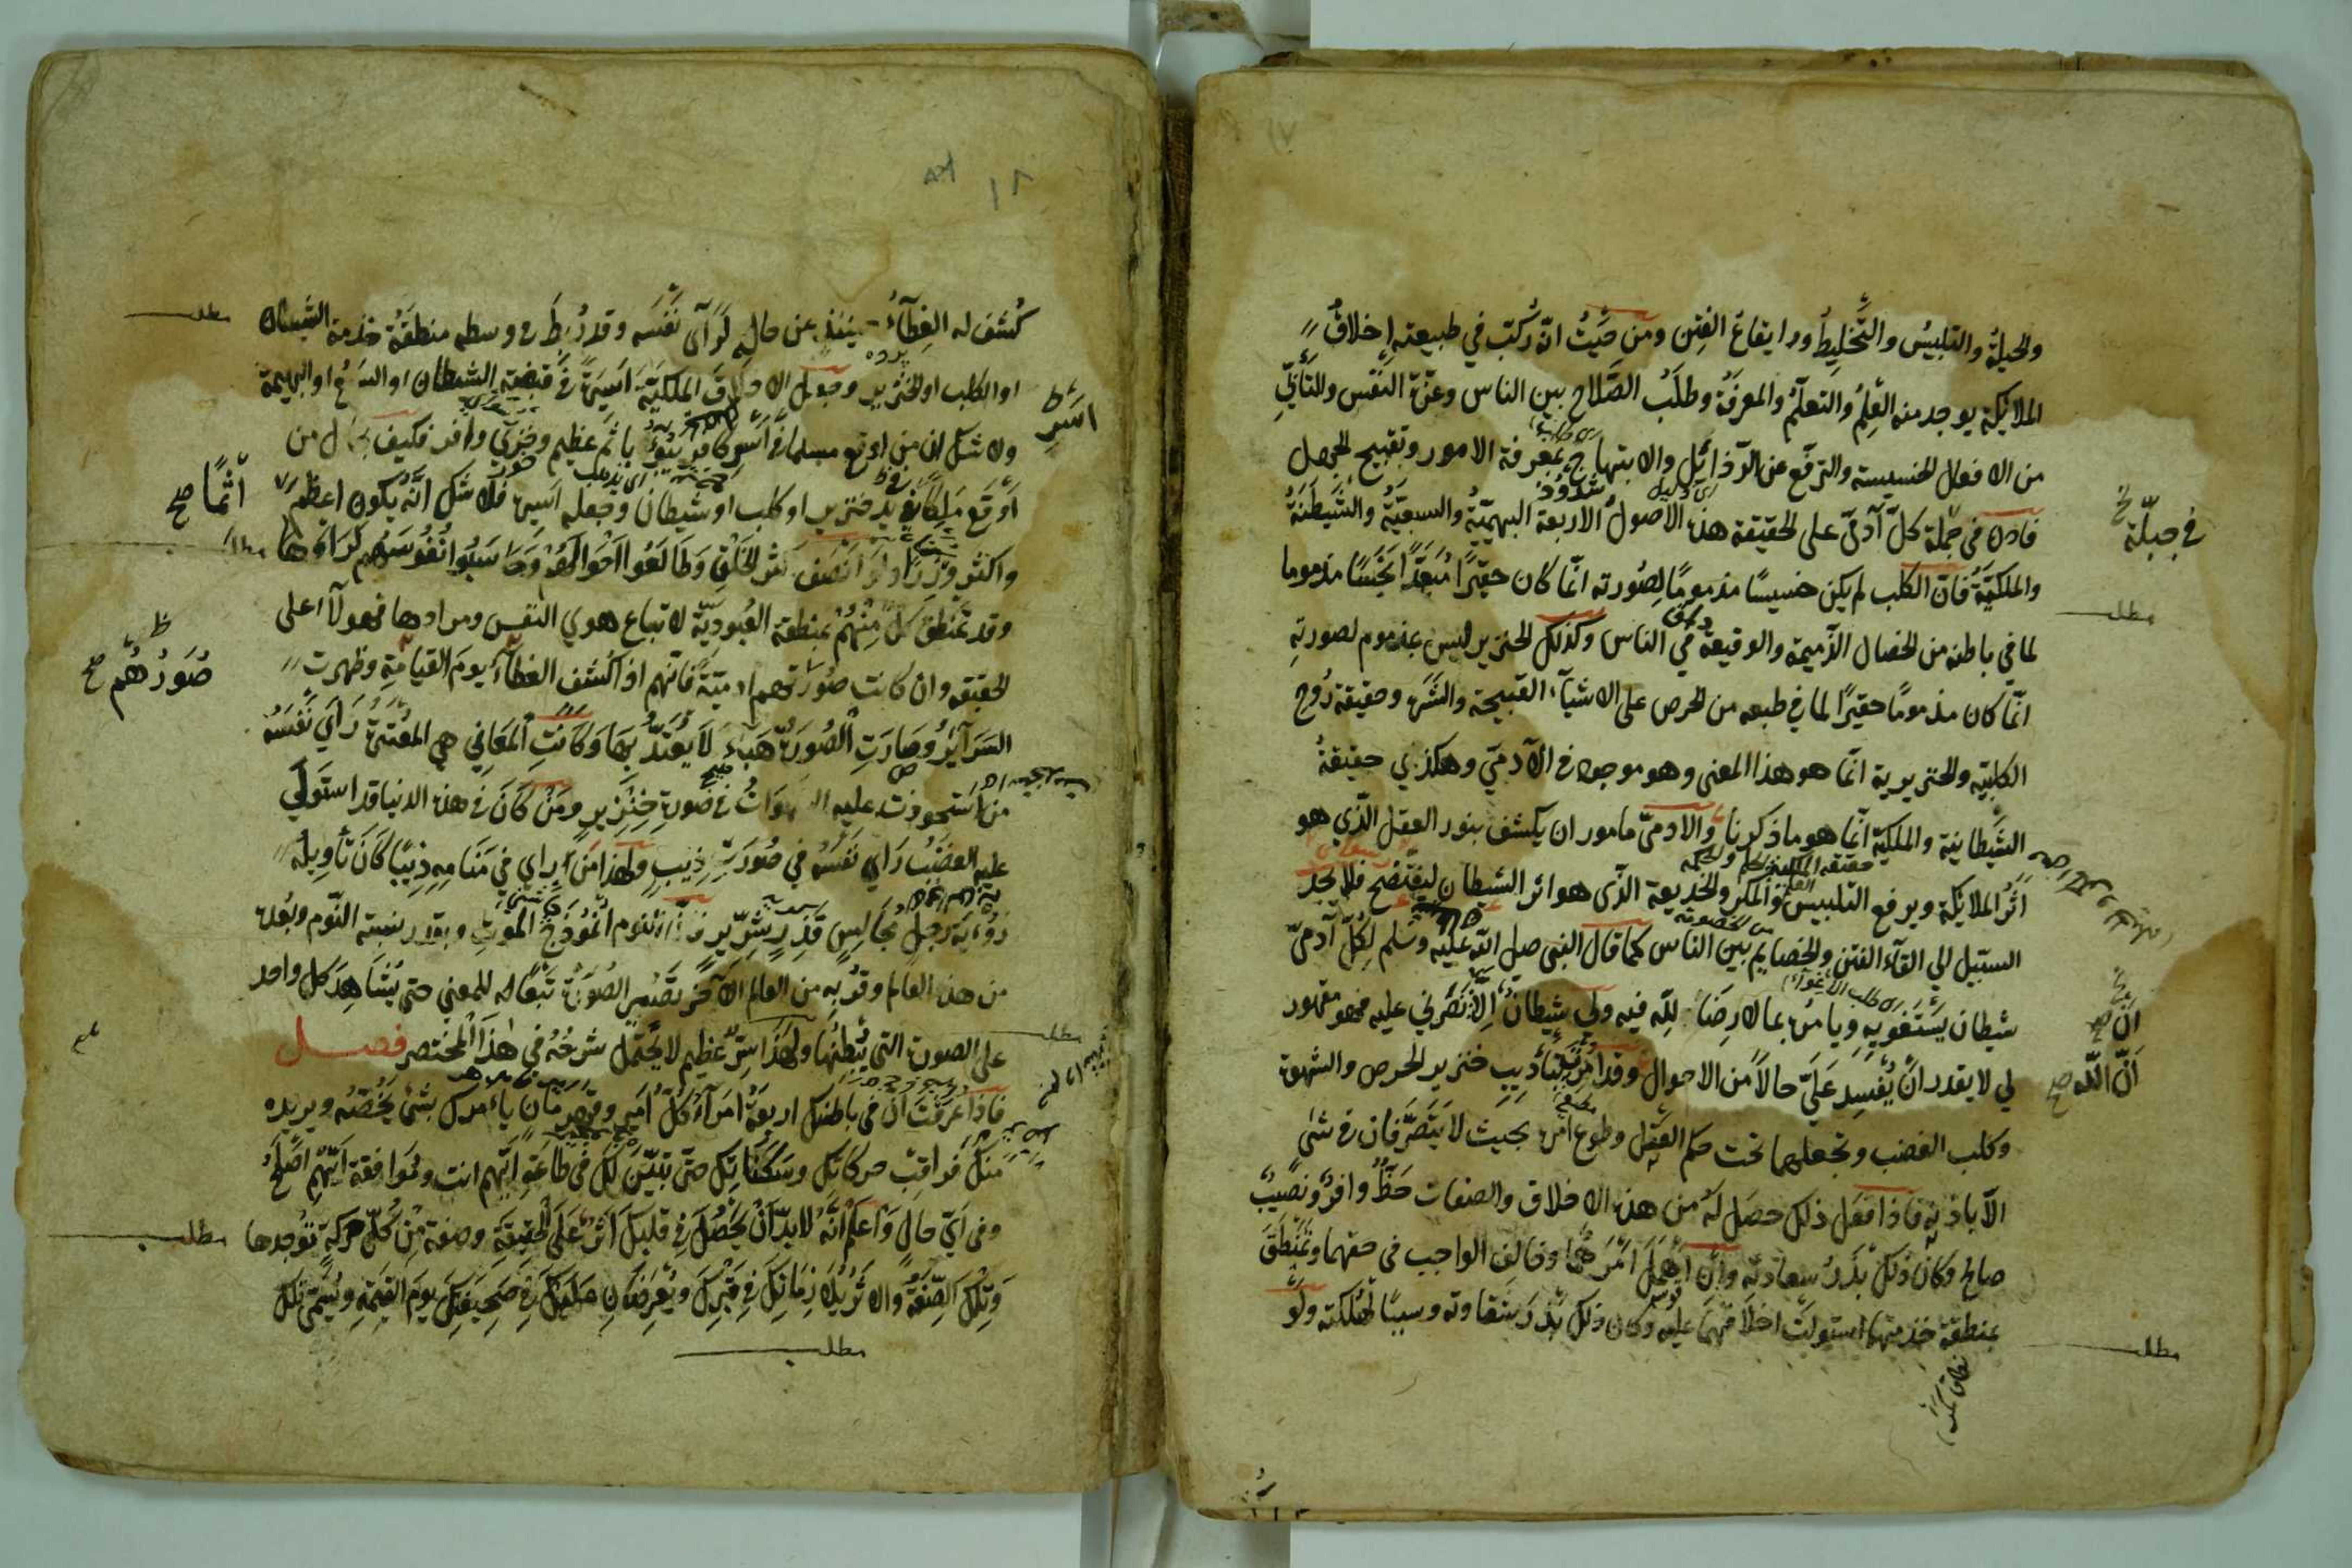 والحيلة والتلبيس والتخليط وايقاع الفتن ومن حيث انه ركب في طبيعته اخلاق
الملائكة يوجد منه العلم والتعلم والمعرفة وطلب الصلاح بين الناس وعزة النفس والتأبي
من الافعال الخسيسة والترفع عن الرذائل والابتهاج بمعرفة الامور وتقبيح الجهل
فاذن في جملة كل آدمي على الحقيقة هذه الاصول الاربعة البهيمية والسبعية والشيطنة
والملكية فان الكلب لم يكن خسيسا مذموما لصورته انما كان حقيرا مبعدا نجسا مذموما
لما في باطنه من الخصال الذميمة والوقيعة في الناس وكذلك الخنزير ليس بمذموم لصورته
انما كان مذموما حقيرا لما في طبعه من الحرص على الاشياء القبيحة والشره وحقيقة روح
الكلبية والخنزيرية انما هو هذا المعنى وهو موجود في الآدمي وهكذي حقيقة
الشيطانية والملكية انما هو ما ذكرنا والادمي مامور ان يكشف بنور العقل الذي هو
اثر الملائكة ويرفع التلبيس والمكر والخديعة الذي هو اثر الشيطان ليفتضح فلا يجد
السبيل الي القآء الفتن والخصايم بين الناس كما قال النبي صلى الله عليه وسلم لكل آدمي
شيطان يستغويه ويامره بما لا رضاء لله فيه ولي شيطان الا نصرني عليه فهو مقهور
لي لا يقدر ان يفسد علي حالا من الاحوال وقد امر بتأديب خنزير الحرص والشهوة
وكلب الغضب وتجعلهما تحت حكم العقل وطوع امره بحيث لا يتصرفان في شئ
الا باذنه فاذا فعل ذلك حصل له من هذه الاخلاق والصفات حظ وافر ونصيب
صالح وكان ذلك بذر سعادته وان اهمل امرهما وخالف الواجب في حقهما وتمنطق
بمنطقة خدمتهما استولت اخلاقهما عليه وكان ذلك بذر شقاوته وسببا لهلكته ولو
في جبلّة
مطلب
ان الله صح
مطلب
كشف له الغطآء حينئذ عن حاله لرآى نفسه وقد ربط في وسطه منطقة خدمة الشيطان
او الكلب او الخنزير وجعل الاخلاق الملكية اسيرة في قبضة الشيطان او السبع او البهيمة
ولا شك ان من اوقع مسلما في اسر كافر يبوء باثم عظيم وخزي وافر فكيف حال من
اوقع ملكا في يد خنزير او كلب او شيطان وجعله اسيره فلا شك انه يكون اعظم
واكثر وزرا ولو انصف اكثر الخلق وطالعوا احوالهم وحاسبوا نفوسهم لرأوها
وقد تمنطق كل منهم بمنطقة العبودية لاتباع هوي النفس ومرادها فهولآء على
الحقيقة وان كانت صورتهم ادمية فانهم اذ اكشف الغطآء يوم القيامة وظهرت
السرآئر وصارت الصورة هباء لا يعتد بها وكانت المعاني هي المعتبرة رأي نفسه
من استحوذت عليه الشهوات في صورة خنزير ومن كان في هذه الدنيا قد استولي
عليه الغضب رأي نفسه في صورة ذيب ولهذا من راي في منامه ذيبا كان تأويله
رؤية رجل مجالس قذر شرير فان النوم انموذج الموت وبقدر نسبة النوم وبعده
من هذه العالم وقربه من العالم الآخر تصير الصورة تبعا له للمعني حتى يشاهد كل واحد
على الصورة التي يبطنها ولهذا سر عظيم لا يحتمل شرحه في هذا المختصر فصل
فاذا عرفت ان في باطنك اربعة امرآء كل امير وقهرمان يامرك بشئ يخصه ويريده
منك فراقب حركاتك وسكناتك حتى تبين لك في طاعة ايهم انت وموافقة ايهم اصلح
وفي اي حال واعلم انه لا بد ان يحصل في قلبك اثر على الحقيقة وصفة من كل حركة توجدها
وتلك الصفة والاثر يلازمانك في قبرك ويعرضان عليك في صحيفتك يوم القيمة ويسمى تلك
مطلب
اسر
اثما صح
مطلب
صورهم صح
مطلب
مطلب
مطلب